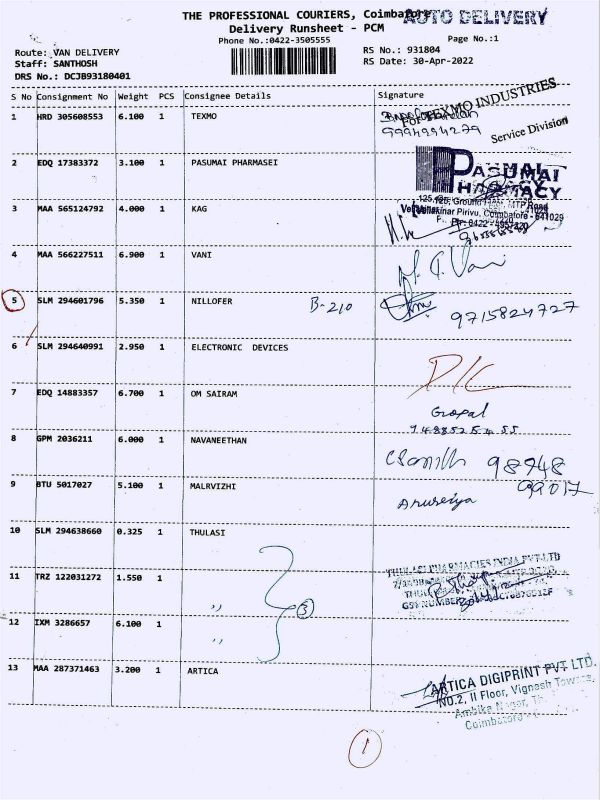 THE PROFESSIONAL COURIERS, Coimbatore
AUTO DELIVERY
Delivery Runsheet - PCM
Phone No.:0422-3505555
Page No.:1
Route: VAN DELIVERY
RS No.: 931804
Staff: SANTHOSH
RS Date: 30-Apr-2022
DRS No.: DCJB93180401
S No Consignment No Weight PCS Consignee Details Signature
1 HRD 305608553 6.100 1 TEXMO
For TEXMO INDUSTRIES
9994994279
Service Division
2 EDQ 17383372 3.100 1 PASUMAI PHARMASEI
PASUMAI
PHARMACY
3 MAA 565124792 4.000 1 KAG
Pirivu, Coimbatore - 641029
4 MAA 566227511 6.900 1 VANI
M. G. Vani
5 SLM 294601796 5.350 1 NILLOFER B-210
9715824727
6 SLM 294640991 2.950 1 ELECTRONIC DEVICES
D/C
7 EDQ 14883357 6.700 1 OM SAIRAM
Gopal
8 GPM 2036211 6.000 1 NAVANEETHAN
98948
99017
9 BTU 5017027 5.100 1 MALRVIZHI
Anuseiya
10 SLM 294638660 0.325 1 THULASI
THULASI PHARMACIES INDIA PVT LTD
11 TRZ 122031272 1.550 1 ,,
3
12 IXM 3286657 6.100 1 ,,
13 MAA 287371463 3.200 1 ARTICA
ARTICA DIGIPRINT PVT LTD.
NO.2, II Floor, Vignesh Towers,
Ambika Nagar,
Coimbatore
1